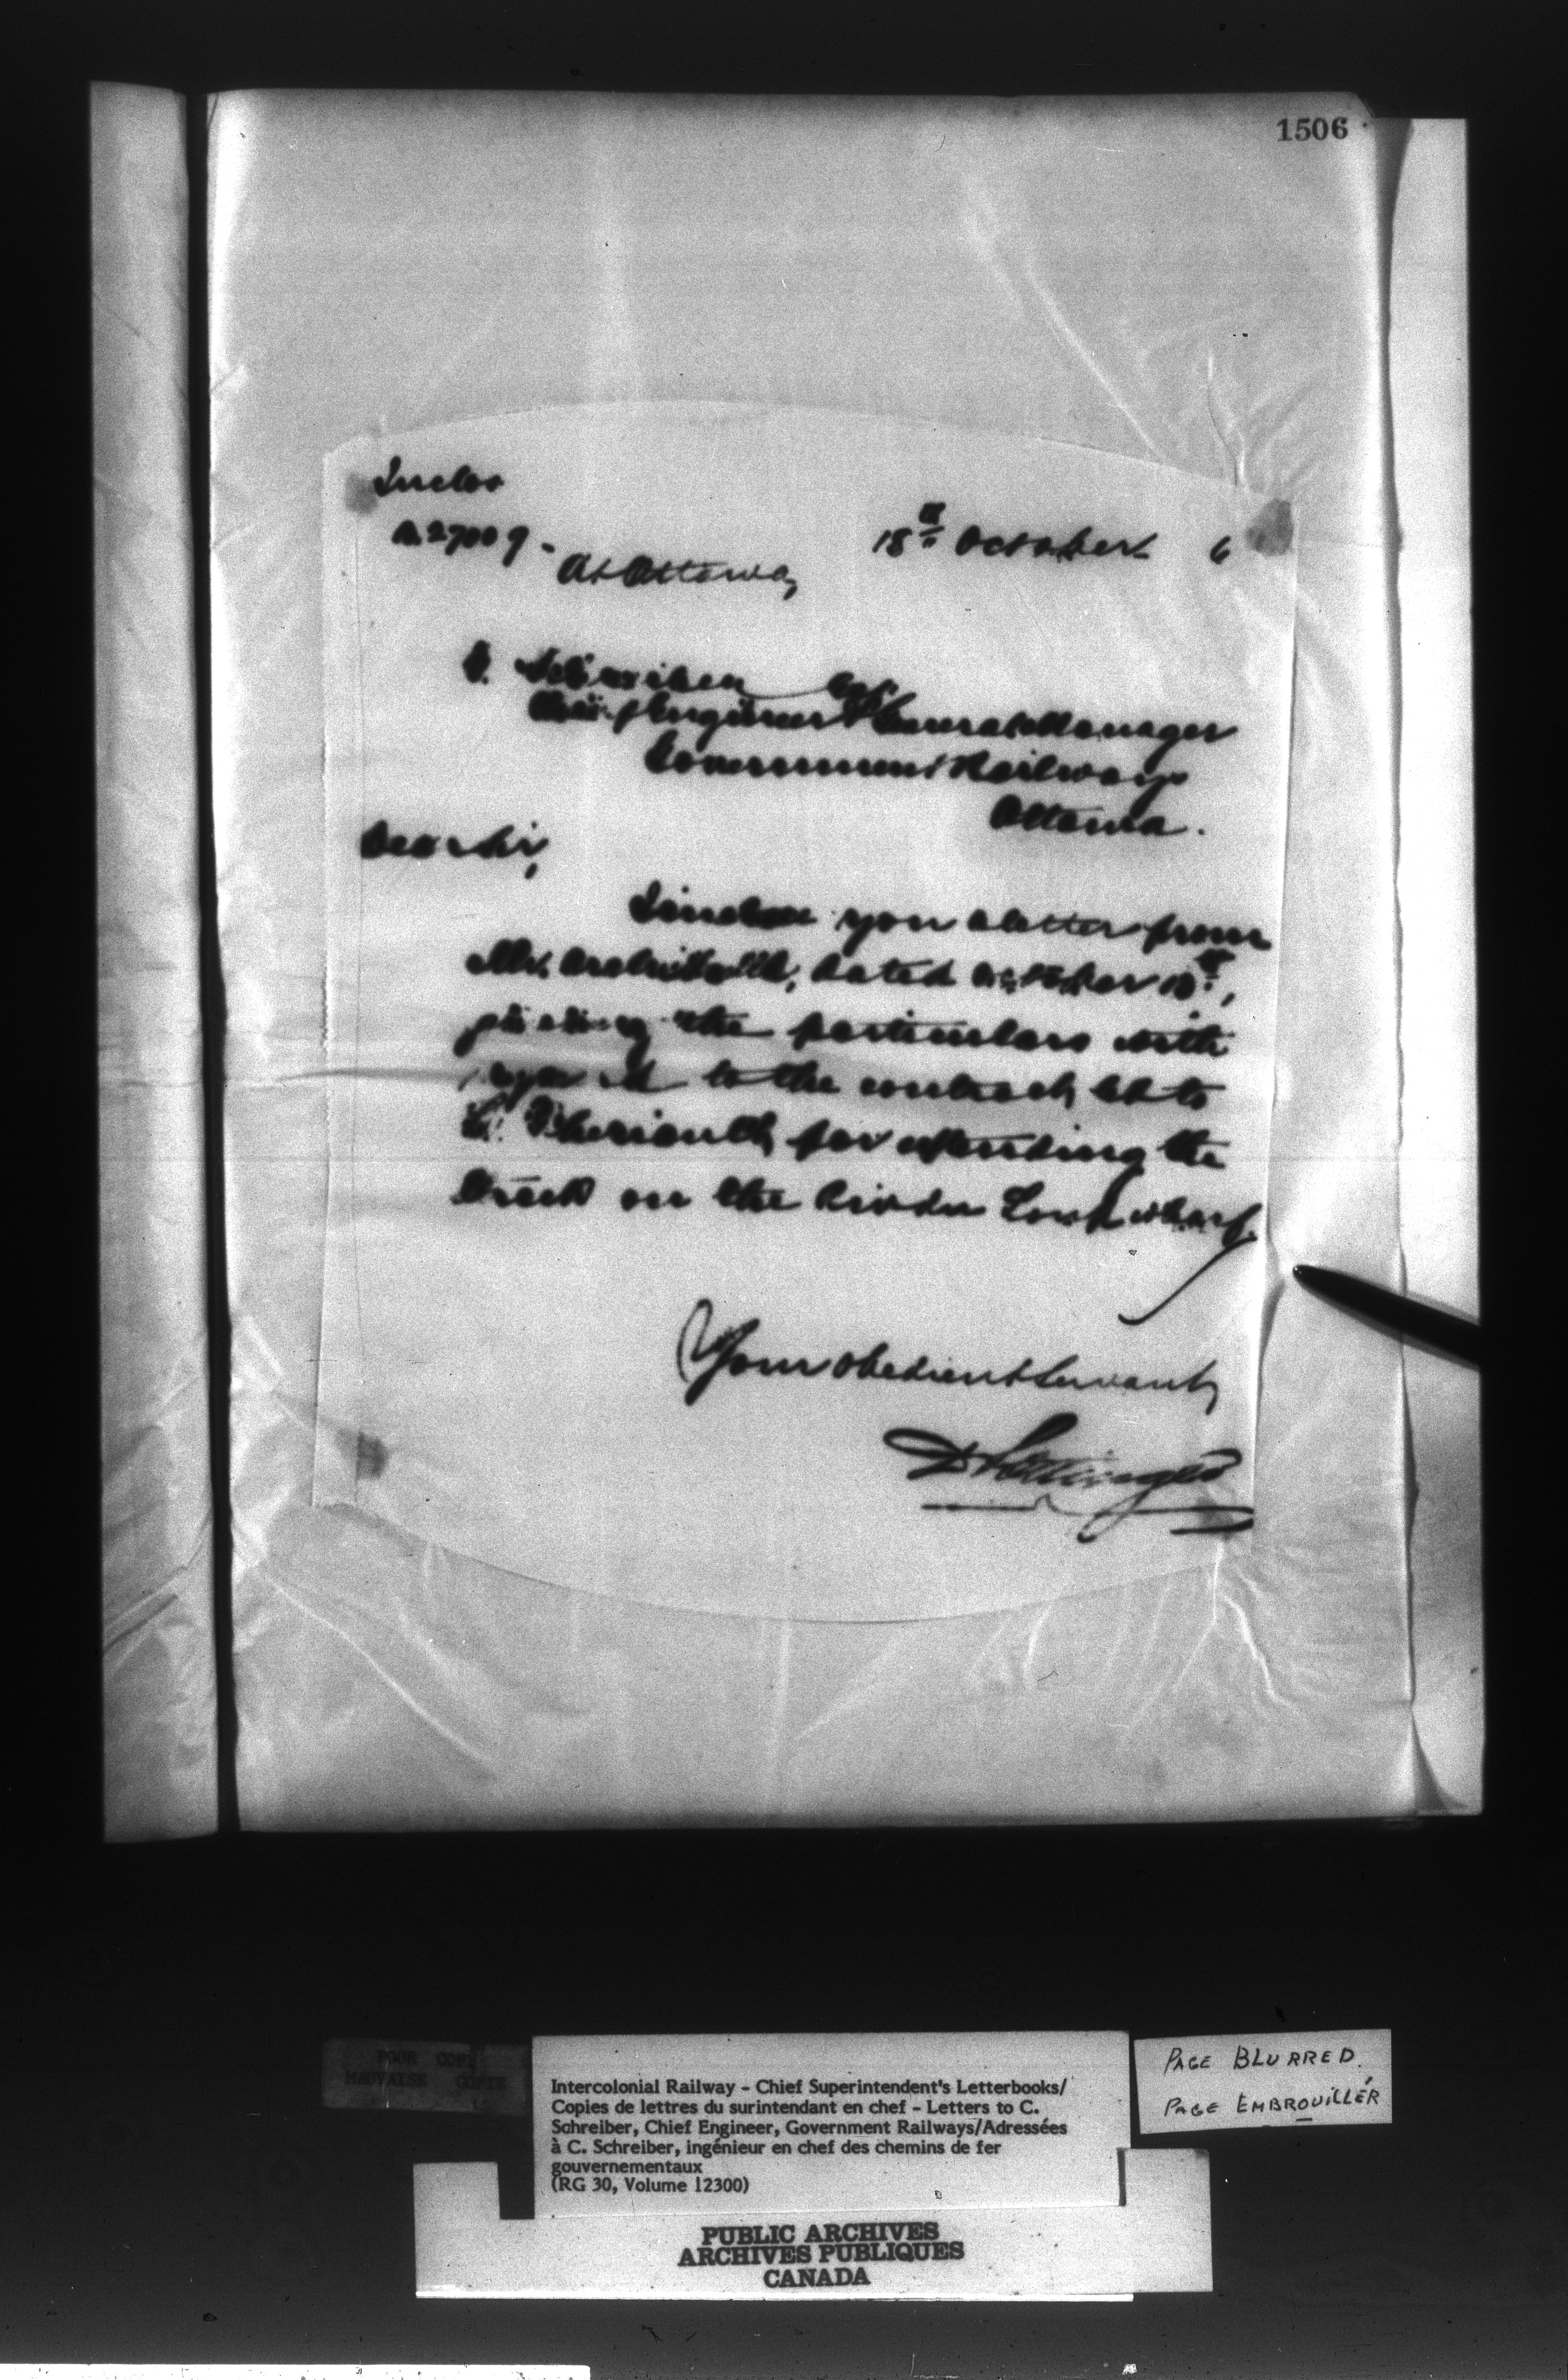 1506
Inclos
A.27009-
At Ottawa,
18th October 6
C. Schreiber Esq
Chief Engineer & General Manager
Government Railways
Ottawa.
Dear Sir,
I enclose you a letter from
Mr. Archibald, dated October 13th,
giving the particulars with
regard to the contract let to
C. Theriault, for extending the
track on the Rivière du Loup wharf.
Your obedient Servant,
D Pottinger
POOR COPY
MAUVAISE COPIE
Intercolonial Railway - Chief Superintendent's Letterbooks/
Copies de lettres du surintendant en chef - Letters to C.
Schreiber, Chief Engineer, Government Railways/Adressées
à C. Schreiber, ingénieur en chef des chemins de fer
gouvernementaux
(RG 30, Volume 12300)
PAGE BLURRED.
PAGE EMBROUILLÉR
PUBLIC ARCHIVES
ARCHIVES PUBLIQUES
CANADA